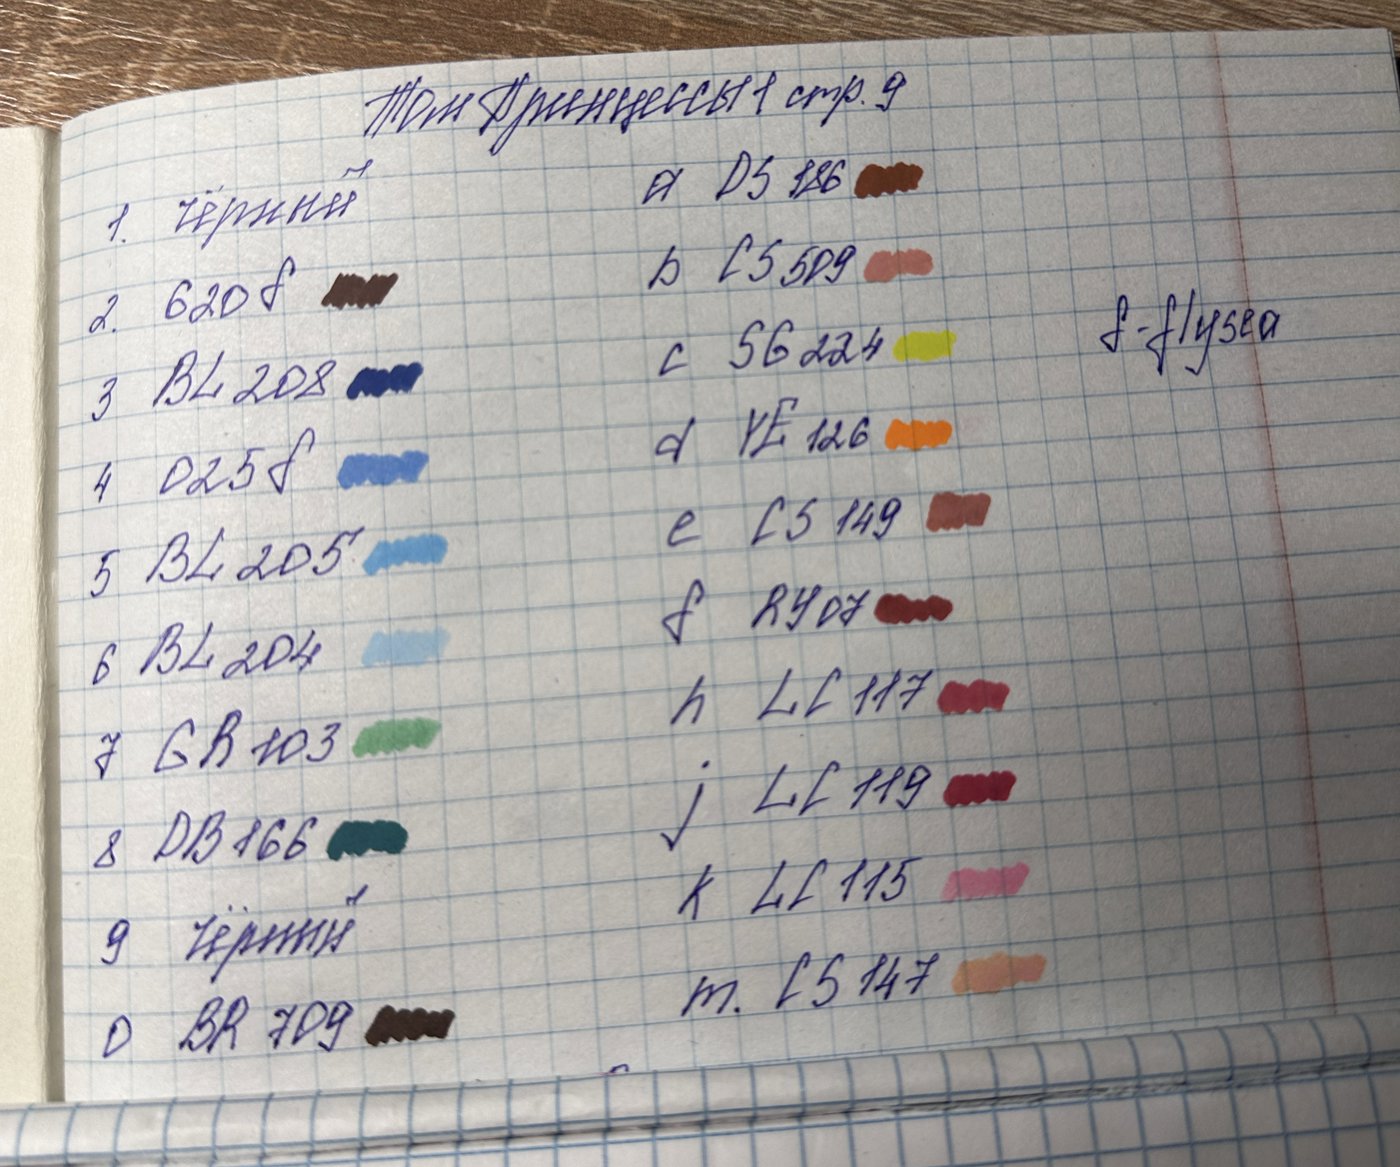 Том Принцессы 1 стр. 9
1. чёрный
2. 620 f
3 BL 208
4 025 f
5 BL 205
6 BL 204
7 GR 103
8 DB 166
9 чёрный
0 BR 709
a DS 186
b CS 509
c SG 224
d YE 126
e CS 149
f RY 07
h LC 117
j LC 119
k LC 115
m. CS 147
f - flysea